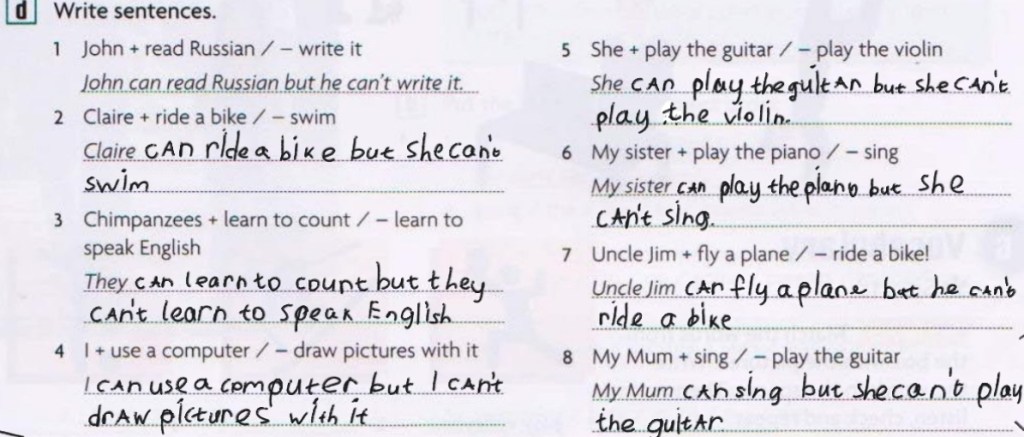 d Write sentences.
1 John + read Russian / – write it
John can read Russian but he can't write it.
2 Claire + ride a bike / – swim
Claire can ride a bike but she can't
swim
3 Chimpanzees + learn to count / – learn to
speak English
They can learn to count but they
can't learn to speak English
4 I + use a computer / – draw pictures with it
I can use a computer but I can't
draw pictures with it
5 She + play the guitar / – play the violin
She can play the guitar but she can't
play the violin.
6 My sister + play the piano / – sing
My sister can play the piano but she
can't sing.
7 Uncle Jim + fly a plane / – ride a bike!
Uncle Jim can fly a plane but he can't
ride a bike
8 My Mum + sing / – play the guitar
My Mum can sing but she can't play
the guitar